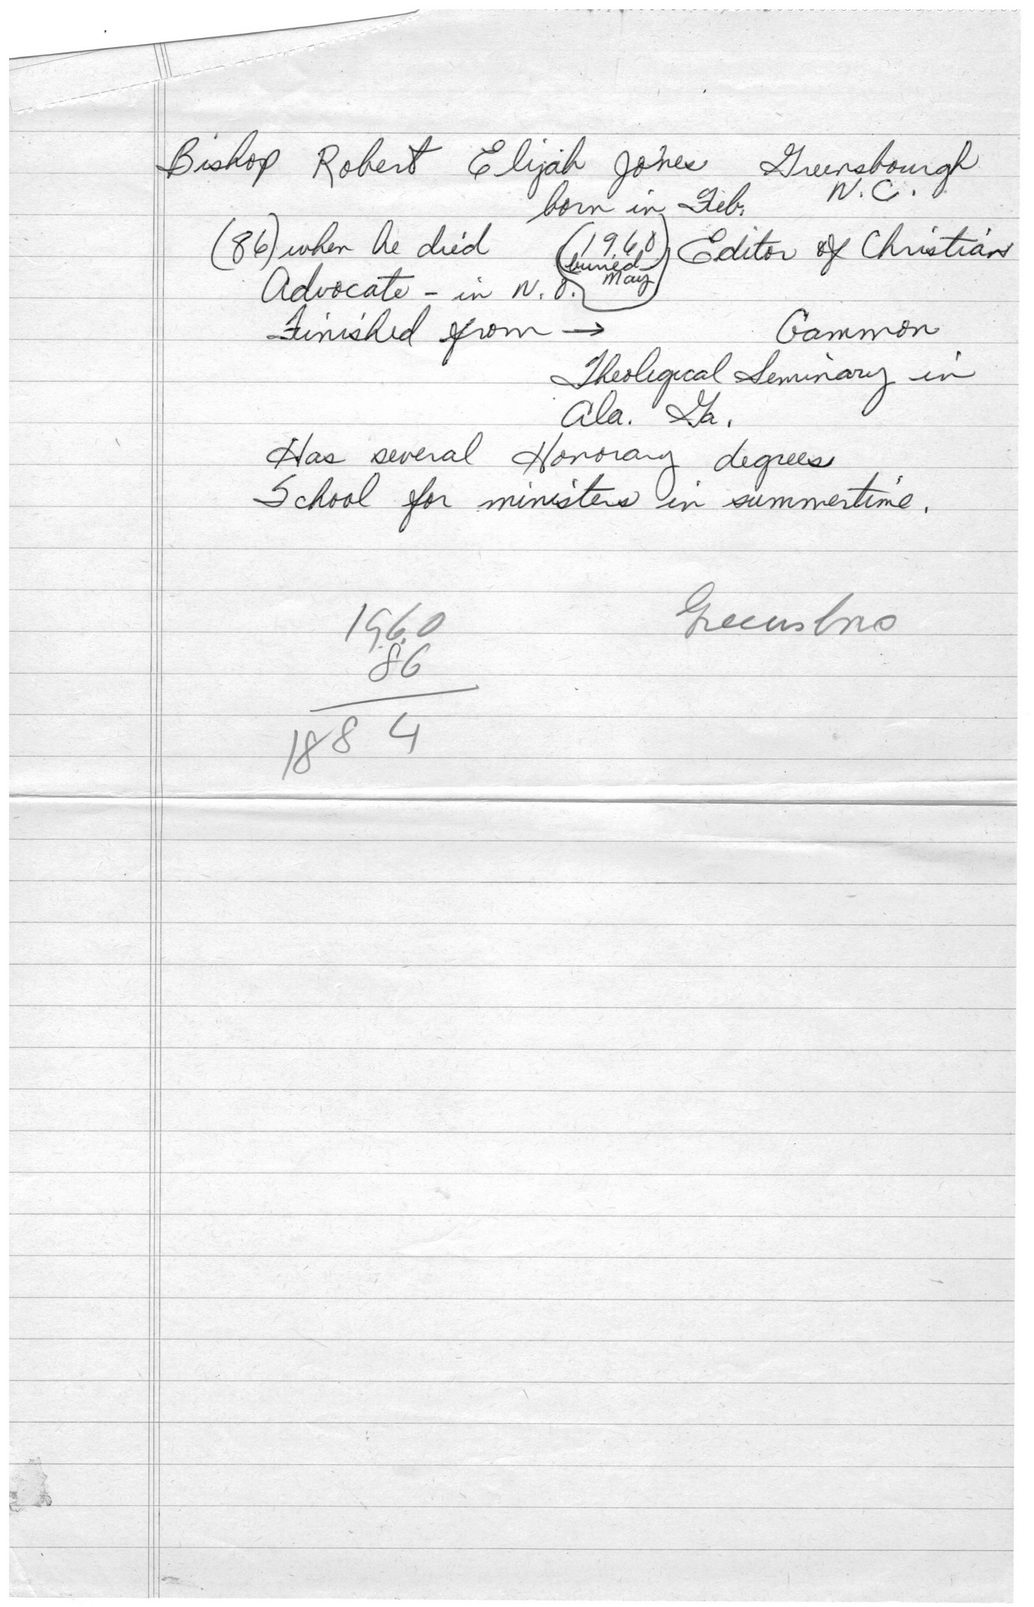 Bishop Robert Elijah Jones Greensbourgh
N.C.
born in Feb.
(86) when he died (1960) Editor of Christian
buried
May
Advocate - in N.O.
Finished from → Gammon
Theological Seminary in
Ala. Ga.
Has several Honorary degrees
School for ministers in summertime.
1960
Greensboro
86
1884